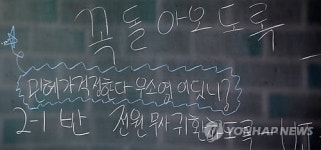 꼭돌아오도록
민혜가걱정한다우소영어딨니?
2-1 반 전원무사귀환하도록
YONHAP NEWS